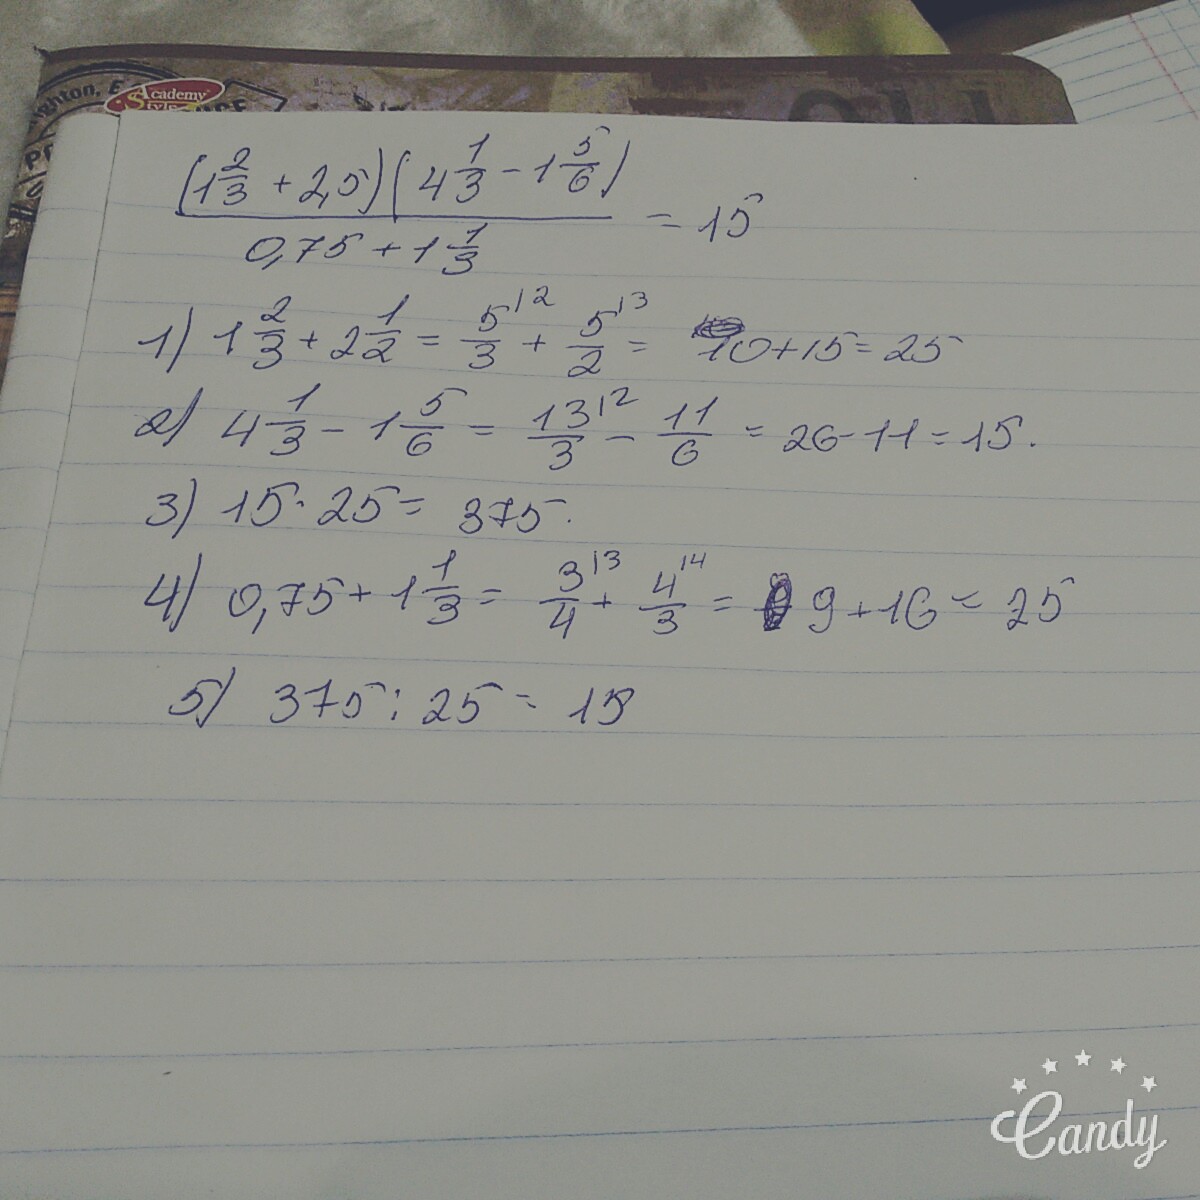 ghton, E
Academy
Style
(1 2/3 + 2,5)(4 1/3 - 1 5/6)
0,75 + 1 1/3
= 15
1) 1 2/3 + 2 1/2 = 5/3 |2 + 5/2 |3 = 10 + 15 = 25
2) 4 1/3 - 1 5/6 = 13/3 |2 - 11/6 = 26 - 11 = 15.
3) 15 · 25 = 375.
4) 0,75 + 1 1/3 = 3/4 |3 + 4/3 |4 = 9 + 16 = 25
5) 375 : 25 = 15
Candy